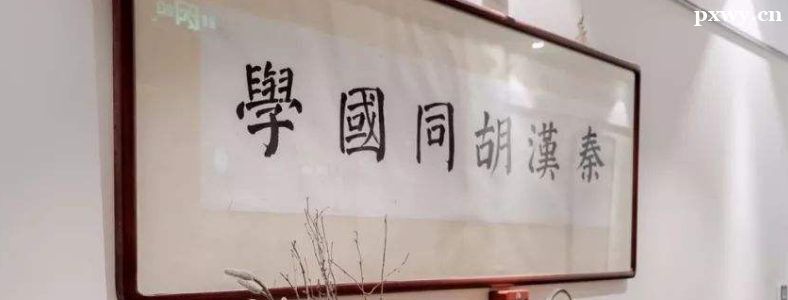 秦漢胡同國學
pxwy.cn